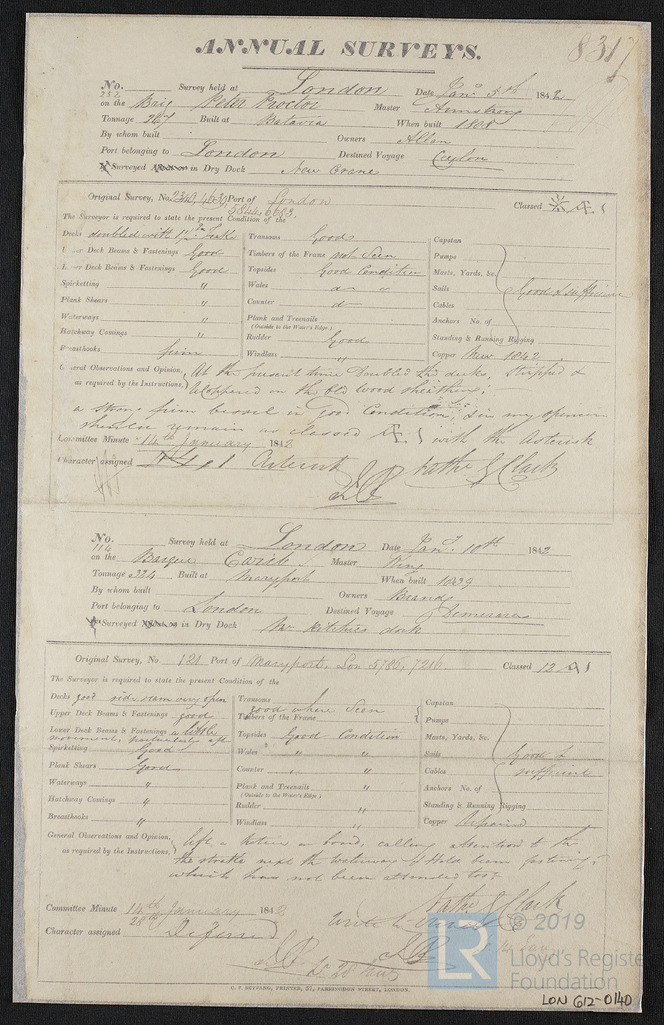 ANNUAL SURVEYS.
8317
No. 232 Survey held at London Date Jany 5th 1842
on the Brig Peter Proctor Master Armstrong
Tonnage 267 Built at Batavia When built 1808
By whom built Owners Allan
Port belonging to London Destined Voyage Ceylon
Surveyed in Dry Dock New Crane
Original Survey, No 2340, 4630, Port of London Classed
5844, 6638
The Surveyor is required to state the present Condition of the
Decks doubled with Transoms Good Capstan
Upper Deck Beams & Fastenings Good Timbers of the Frame not Seen Pumps
Lower Deck Beams & Fastenings Good Topsides Good Condition Masts, Yards, &c.
Spicketting " Wales do " Sails Good & sufficient
Plank Shears " Counter do Cables
Waterways " Plank and Treenails Anchors No. of
(Outside to the Water's Edge.)
Hatchway Comings " Rudder Good Standing & Running Rigging
Breasthooks firm Windlass " Copper New 1842
General Observations and Opinion, At the present time doubled the decks, stripped &
as required by the Instructions, Coppered on the old wood sheathing;
a strong firm vessel in Good Condition, & in my opinion
remain as classed Æ1 with the Asterisk
Committee Minute 14th January 1842
Character assigned Æ 1 Asterisk Nathl G Clark
No. 114 Survey held at London Date Jany. 10th 1842
on the Barque Earl Master King
Tonnage 334 Built at Maryport When built 1839
By whom built Owners Brand
Port belonging to London Destined Voyage Demerara
Surveyed in Dry Dock Mr Ritchies dock
Original Survey, No 121 Port of Maryport, Lon 5186, 7216 Classed 12 A1
The Surveyor is required to state the present Condition of the
Decks good side seam very open Transoms Capstan
Upper Deck Beams & Fastenings good Timbers of the Frame good where Seen Pumps
Lower Deck Beams & Fastenings a little Topsides Good Condition Masts, Yards, &c.
movement, particularly aft
Spicketting Good Wales " " Sails Good &
Plank Shears Good Counter " " Cables sufficient
Waterways " Plank and Treenails " Anchors No. of
(Outside to the Water's Edge.)
Hatchway Comings " Rudder " Standing & Running Rigging
Breasthooks " Windlass " Copper Repaired
General Observations and Opinion, left a Notice on board, calling attention to the
as required by the Instructions, the strake next the waterway & Hold beam fastenings
which has not been attended to
Nathl G Clark
Committee Minute 14th January 1842
28th
Character assigned Deferred
Wrote to Owner
C. F. SEYFANG, PRINTER, 57, FARRINGDON STREET, LONDON.
LR
© 2019
Lloyd's Register
Foundation
LON 612-0140